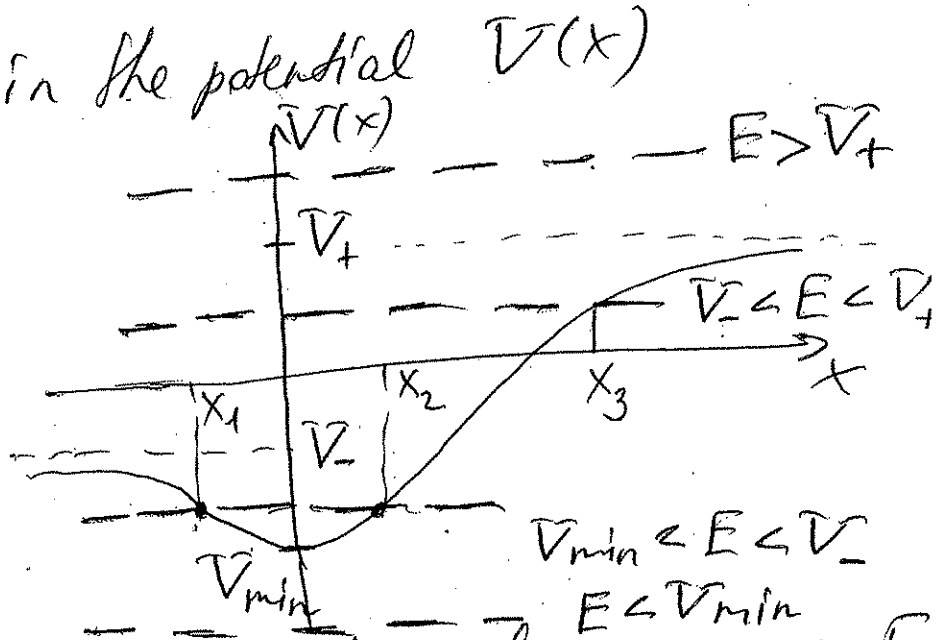 in the potential V(x)
V(x)
E > V₊
V₊
V₋ < E < V₊
x₁
x₂
x₃
x
V₋
V_min
V_min < E < V₋
E < V_min